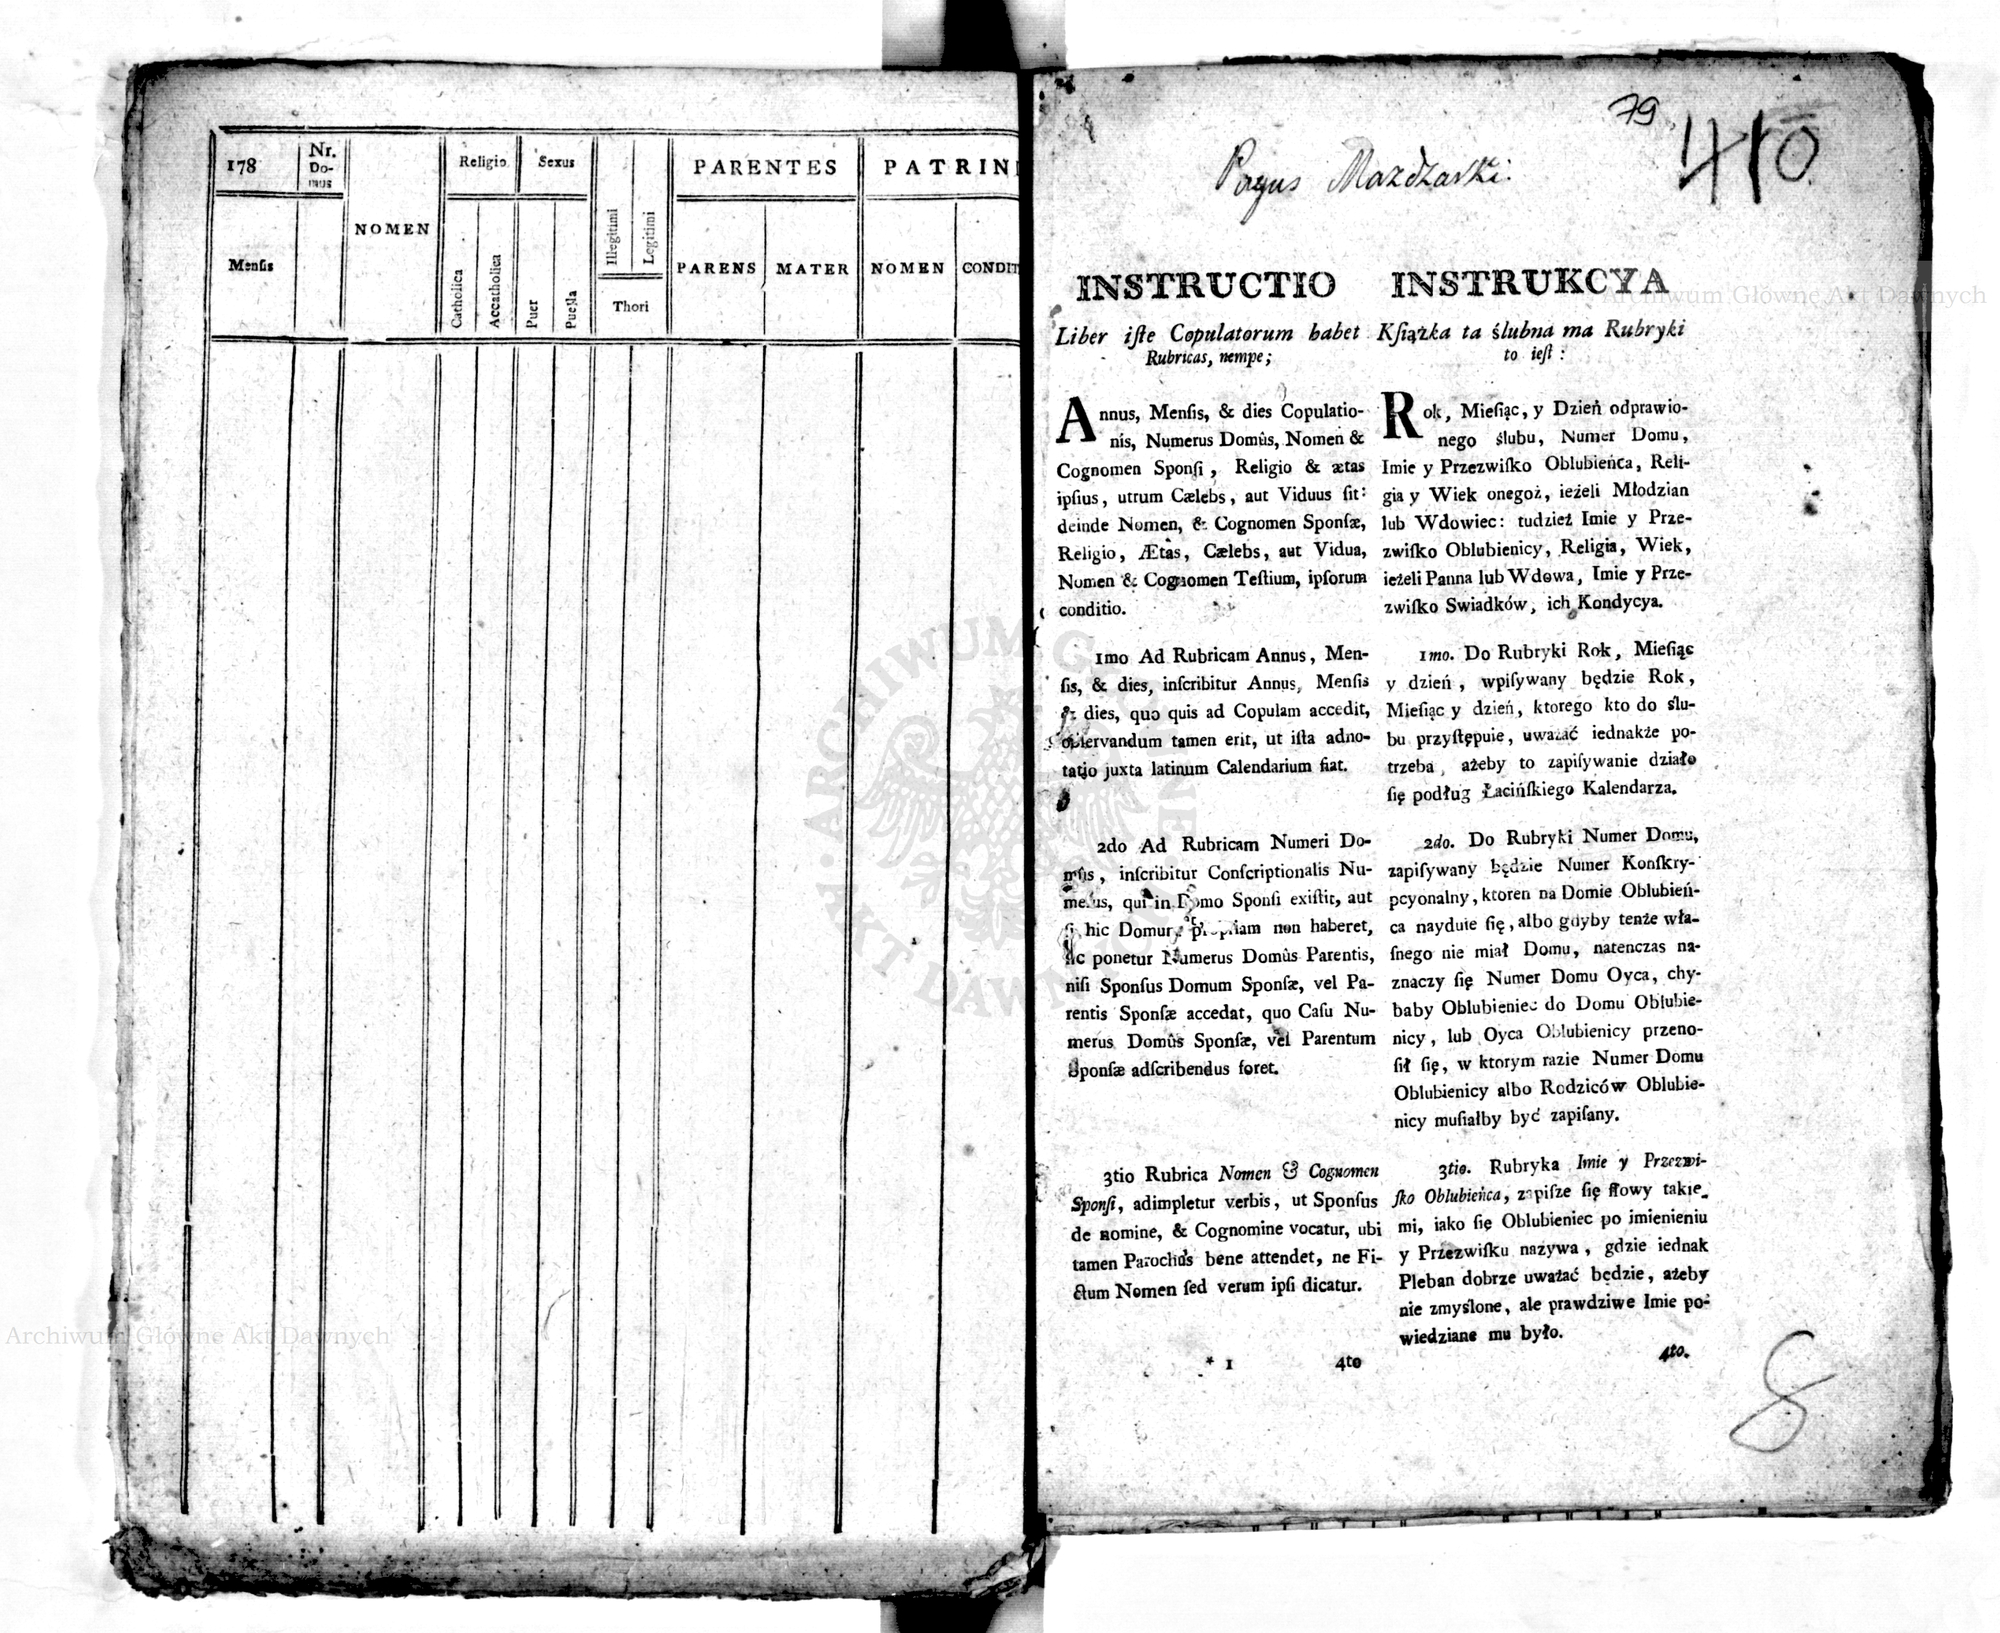 178
Nr.
Do-
mus
NOMEN
Religio
Sexus
Illegitimi
Legitimi
PARENTES
PATRINI
Mensis
Catholica
Accatholica
Puer
Puella
Thori
PARENS
MATER
NOMEN
CONDIT
79
410
Pagus Mazdzarski:
INSTRUCTIO
Liber iſte Copulatorum habet
Rubricas, nempe;
Annus, Menſis, & dies Copulatio-
nis, Numerus Domûs, Nomen &
Cognomen Sponſi, Religio & ætas
ipſius, utrum Cælebs, aut Viduus ſit:
deinde Nomen, & Cognomen Sponſæ,
Religio, Ætas, Cælebs, aut Vidua,
Nomen & Cognomen Teſtium, ipſorum
conditio.
1mo Ad Rubricam Annus, Men-
ſis, & dies, inſcribitur Annus, Menſis
& dies, quo quis ad Copulam accedit,
obſervandum tamen erit, ut iſta adno-
tatio juxta latinum Calendarium fiat.
2do Ad Rubricam Numeri Do-
mûs, inſcribitur Conſcriptionalis Nu-
merus, qui in Domo Sponſi exiſtit, aut
ſi hic Domum propriam non haberet,
hic ponetur Numerus Domûs Parentis,
niſi Sponſus Domum Sponſæ, vel Pa-
rentis Sponſæ accedat, quo Caſu Nu-
merus Domûs Sponſæ, vel Parentum
Sponſæ adſcribendus foret.
3tio Rubrica Nomen & Cognomen
Sponſi, adimpletur verbis, ut Sponſus
de nomine, & Cognomine vocatur, ubi
tamen Parochus bene attendet, ne Fi-
ctum Nomen ſed verum ipſi dicatur.
* 1 4to
INSTRUKCYA
Kſiążka ta ślubna ma Rubryki
to ieſt:
Rok, Mieſiąc, y Dzień odprawio-
nego ślubu, Numer Domu,
Imie y Przezwiſko Oblubieńca, Reli-
gia y Wiek onegoż, ieżeli Młodzian
lub Wdowiec: tudzież Imie y Prze-
zwiſko Oblubienicy, Religia, Wiek,
ieżeli Panna lub Wdowa, Imie y Prze-
zwiſko Swiadków, ich Kondycya.
1mo. Do Rubryki Rok, Mieſiąc
y dzień, wpiſywany będzie Rok,
Mieſiąc y dzień, ktorego kto do ślu-
bu przyſtępuie, uważać iednakże po-
trzeba, ażeby to zapiſywanie działo
ſię podług Łacińſkiego Kalendarza.
2do. Do Rubryki Numer Domu,
zapiſywany będzie Numer Konſkry-
pcyonalny, ktoren na Domie Oblubień-
ca nayduie ſię, albo gdyby tenże wła-
ſnego nie miał Domu, natenczas na-
znaczy ſię Numer Domu Oyca, chy-
baby Oblubieniec do Domu Oblubie-
nicy, lub Oyca Oblubienicy przeno-
ſił ſię, w ktorym razie Numer Domu
Oblubienicy albo Rodziców Oblubie-
nicy muſiałby być zapiſany.
3tio. Rubryka Imie y Przezwi-
ſko Oblubieńca, zapiſze ſię ſłowy takie-
mi, iako ſię Oblubieniec po imienieniu
y Przezwiſku nazywa, gdzie iednak
Pleban dobrze uważać będzie, ażeby
nie zmyślone, ale prawdziwe Imie po-
wiedziane mu było.
4to.
8
Archiwum Główne Akt Dawnych
Archiwum Główne Akt Dawnych
ARCHIWUM GŁÓWNE AKT DAWNYCH